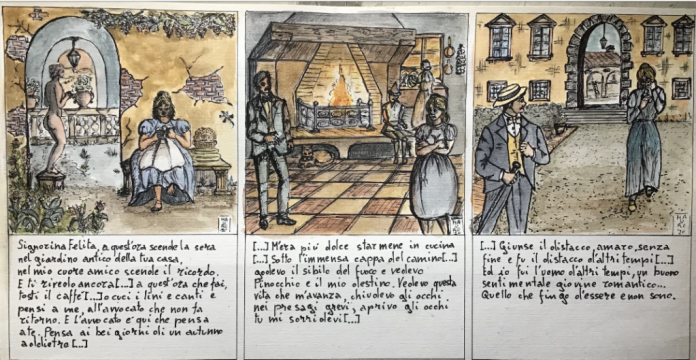 Signorina Felita, a quest'ora scende la sera
nel giardino antico della tua casa,
nel mio cuore amico scende il ricordo.
E ti rivedo ancora[...] a quest'ora che fai,
tosti il caffè[...]o cuci i lini e canti e
pensi a me, all'avvocato che non fa
ritorno. E l'avvocato è qui che pensa
a te. Pensa ai bei giorni di un autunno
addietro[...]
[...] M'era più dolce starmene in cucina
[...] Sotto l'immensa cappa del camino[...]
godevo il sibilo del fuoco e vedevo
Pinocchio e il mio destino. Vedevo questa
vita che m'avanza, chiudevo gli occhi
nei presagi grevi, aprivo gli occhi
tu mi sorridevi[...]
[...] Giunse il distacco, amaro, senza
fine e fu il distacco d'altri tempi[...]
Ed io fui l'uomo d'altri tempi, un buono
sentimentale giovine romantico...
Quello che fingo d'essere e non sono.